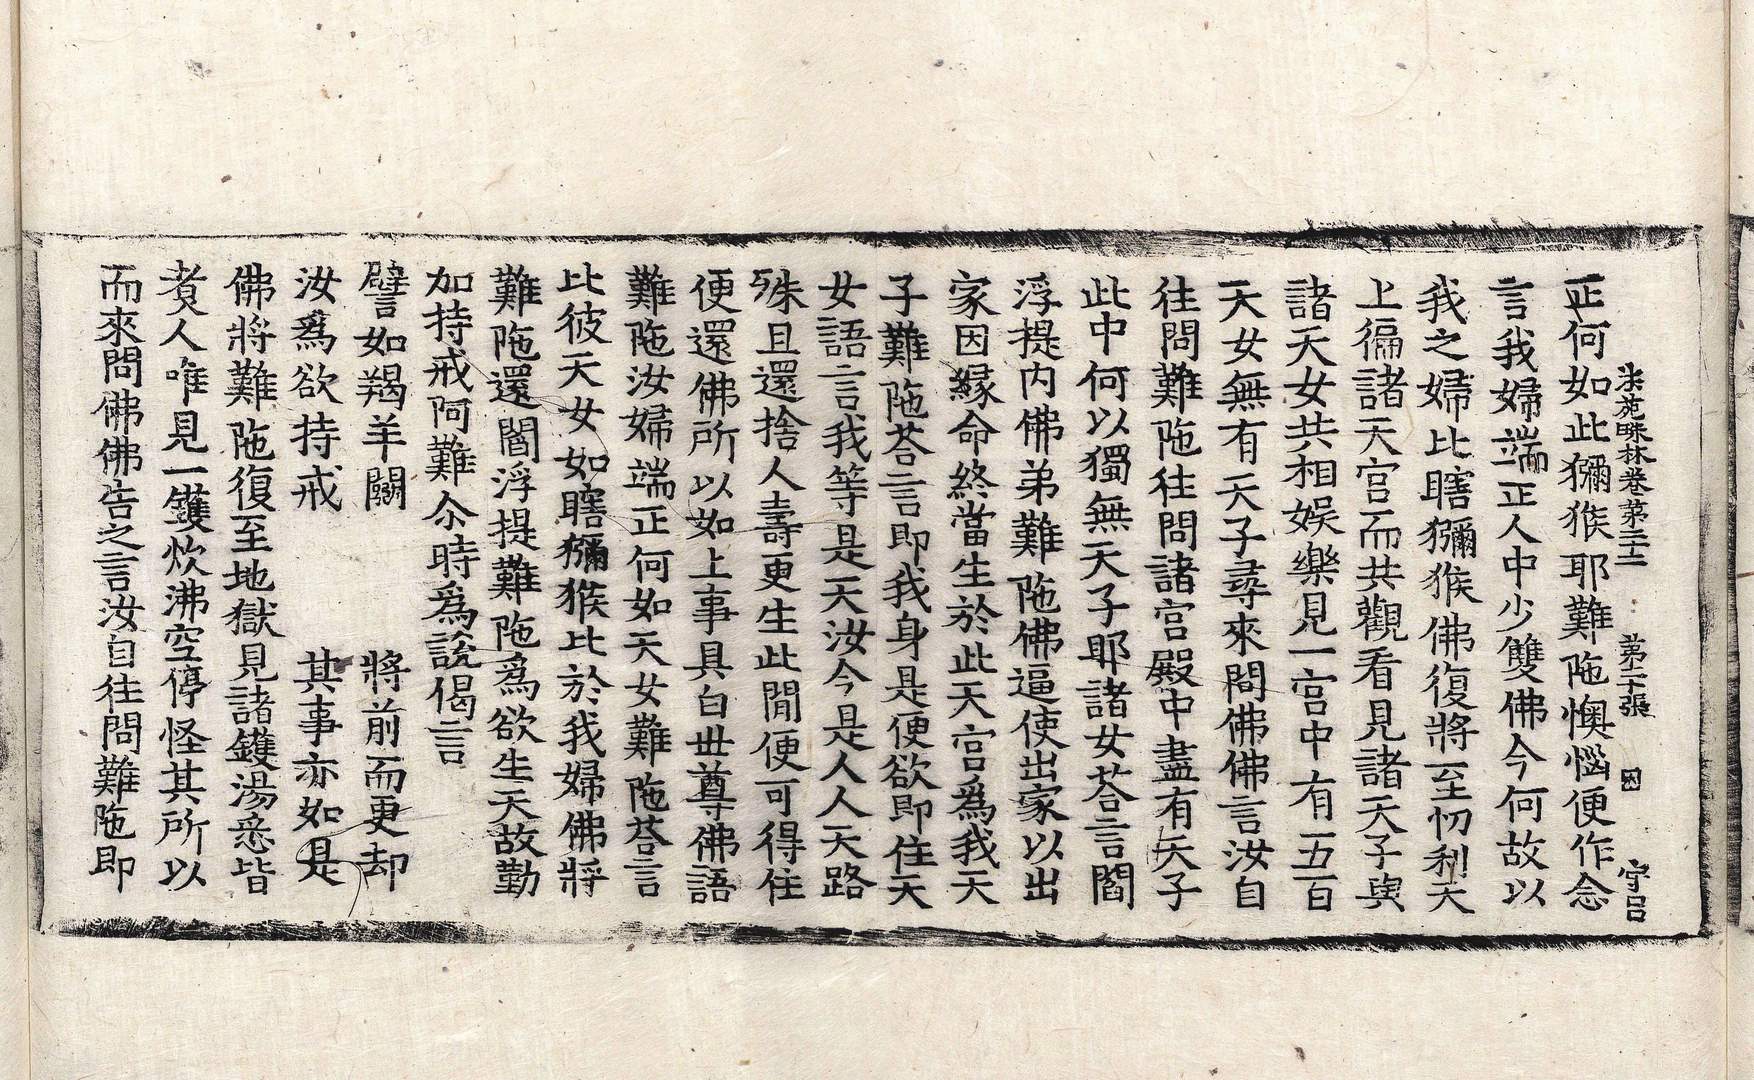 法苑珠林卷第二十二 第二十張 𡆮 守呂
正何如此獼猴耶難陁懊惱便作念
言我婦端正人中少雙佛今何故以
我之婦比瞎獼猴佛復將至忉利天
上徧諸天宫而共觀看見諸天子與
諸天女共相娱樂見一宫中有五百
天女無有天子尋來問佛佛言汝自
往問難陁往問諸宫殿中盡有天子
此中何以獨無天子耶諸女荅言閻
浮提内佛弟難陁佛逼使出家以出
家因緣命終當生於此天宫爲我天
子難陁荅言即我身是便欲即住天
女語言我等是天汝今是人人天路
殊且還捨人壽更生此間便可得住
便還佛所以如上事具白世尊佛語
難陁汝婦端正何如天女難陁荅言
比彼天女如瞎獼猴比於我婦佛將
難陁還閻浮提難陁爲欲生天故勤
加持戒阿難尒時爲說偈言
譬如羯羊鬭 將前而更却
汝爲欲持戒 其事亦如是
佛將難陁復至地獄見諸鑊湯悉皆
煮人唯見一鑊炊沸空停怪其所以
而來問佛佛告之言汝自往問難陁即